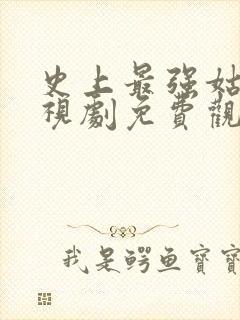 史上最强姑
視劇免費觀
我是鳄鱼寶寶